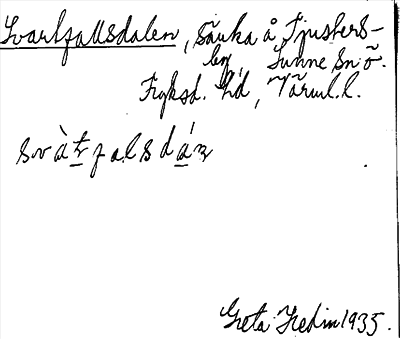 Svartfallsdalen, sänka å Tjusters-
by, Sunne sn ö.
Fryksd. hd, Värml. l.
svàtfalsdán
Greta Hedin 1935.